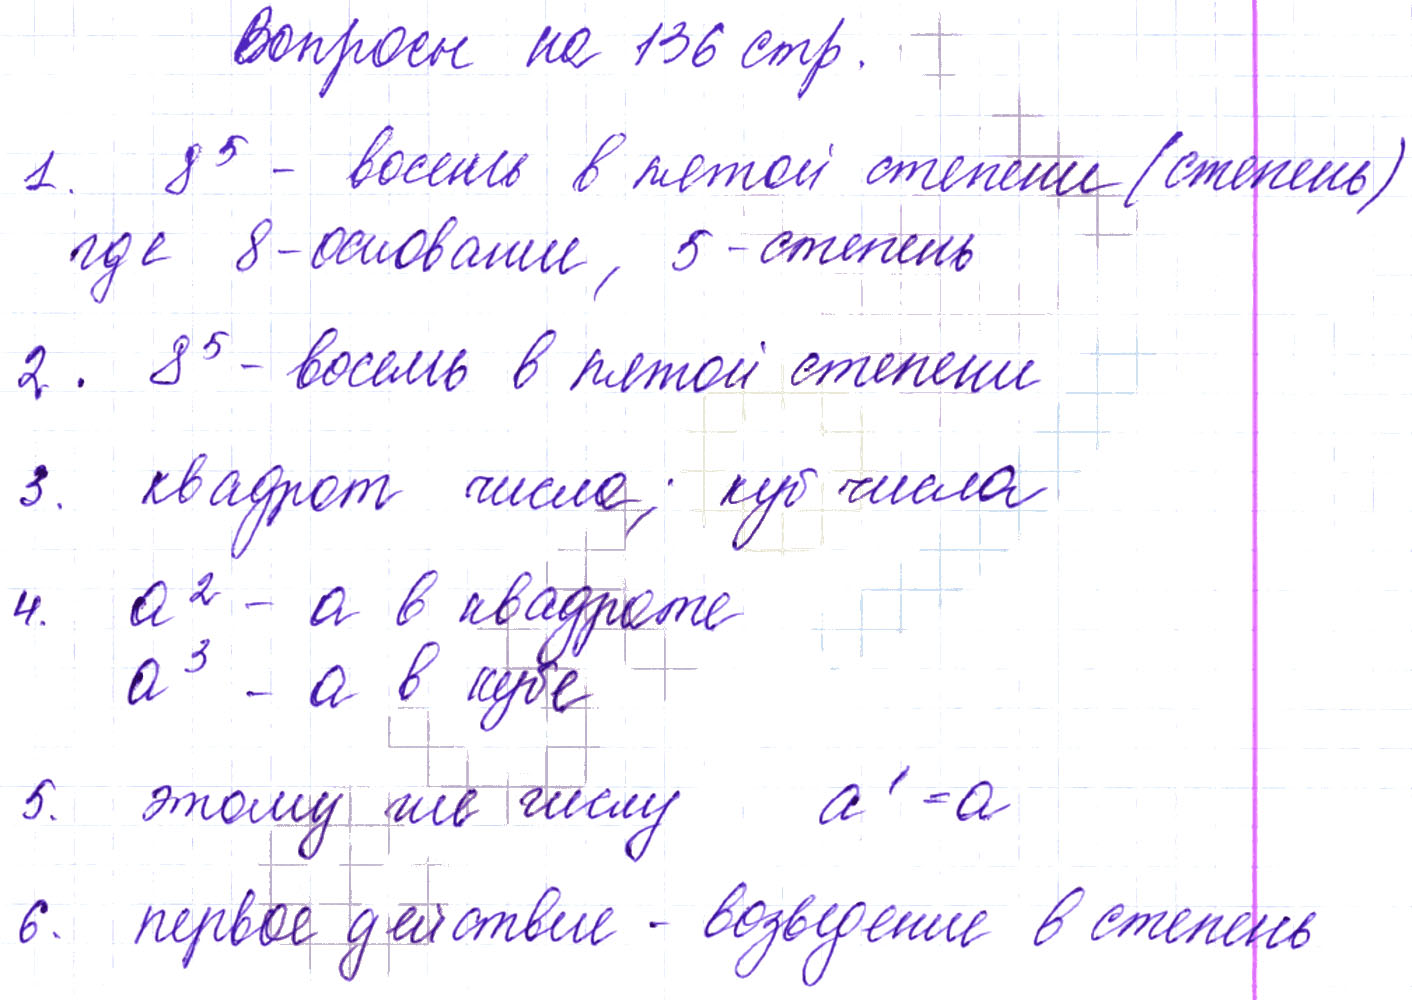 Вопросы на 136 стр.
1. 8⁵ - восемь в пятой степени (степень)
где 8 - основание, 5 - степень
2. 8⁵ - восемь в пятой степени
3. квадрат числа; куб числа
4. a² - a в квадрате
a³ - a в кубе
5. этому же числу a¹ = a
6. первое действие - возведение в степень